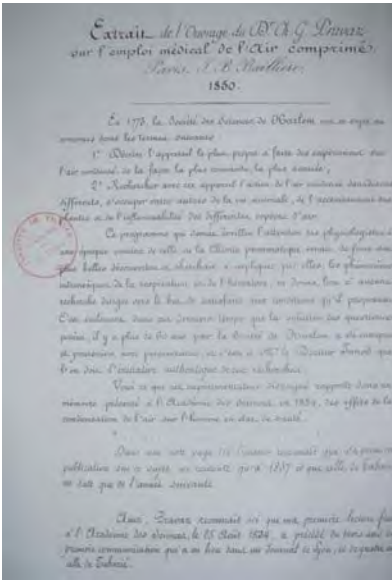 Extrait de l'Ouvrage du Dr Ch. G. Pravaz
sur l'emploi médical de l'Air comprimé.
Paris J. B. Baillière
1850.
En 1778, la Société des Sciences de Harlem mit au sujet au
concours dans les termes suivants:
1° Décrire l'appareil le plus propre à faire des expériences sur
l'air condensé de la façon la plus commode, la plus assurée;
2° Rechercher avec cet appareil l'action de l'air condensé dans divers
différents, s'occuper entre autres de la vie animale, de l'accroissement des
plantes et de l'inflammabilité des différentes espèces d'air.
Ce programme qui devait éveiller l'attention des physiologistes à
une époque voisine de celle où la Chimie pneumatique venait de faire ses
plus belles découvertes et cherchait à expliquer par elles, les phénomènes
intrinsèques de la respiration et de l'hématose, ne donna lieu à aucune
recherche dirigée vers le but de satisfaire aux conditions qu'il proposait.
C'est seulement dans ces derniers temps que la solution des questions
posées, il y a plus de 60 ans par la Société de Harlem, a été
et poursuivie avec persévérance, et c'est à Mr le Docteur Junod que
l'on doit l'initiative authentique de ces recherches.
Voici ce que cet expérimentateur distingué rapporte dans un
mémoire présenté à l'Académie des Sciences, en 1834, des effets de la
condensation de l'air sur l'homme en état de santé.
Dans une note page l'auteur reconnaît que sa première
publication sur ce sujet ne remonte qu'à 1837 et que celle de Tabarié
ne date que de l'année suivante.
Ainsi, Pravaz reconnaît ici que ma première lecture faite
à l'Académie des Sciences, le 25 Août 1834, a précédé de trois ans la
première communication qui a eu lieu dans un Journal de Lyon, et de quatre
celle de Tabarié.